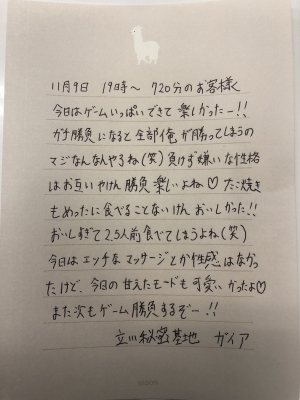 11月9日 19時〜 720分のお客様
今日はゲームいっぱいできて楽しかったー!!
ガチ勝負になると全部俺が勝ってしまうの
マジなんなんやろね(笑)負けず嫌いな性格
はお互いやけん勝負楽しいよね♡たこ焼き
もめったに食べることないけんおいしかった!!
おいしすぎて2.5人前食べてしまうよね(笑)
今日はエッチなマッサージとか性感はなかっ
たけど、今日の甘えたモードも可愛いかったよ♡
また次もゲーム勝負するぞー!!
立川秘密基地 ガイア